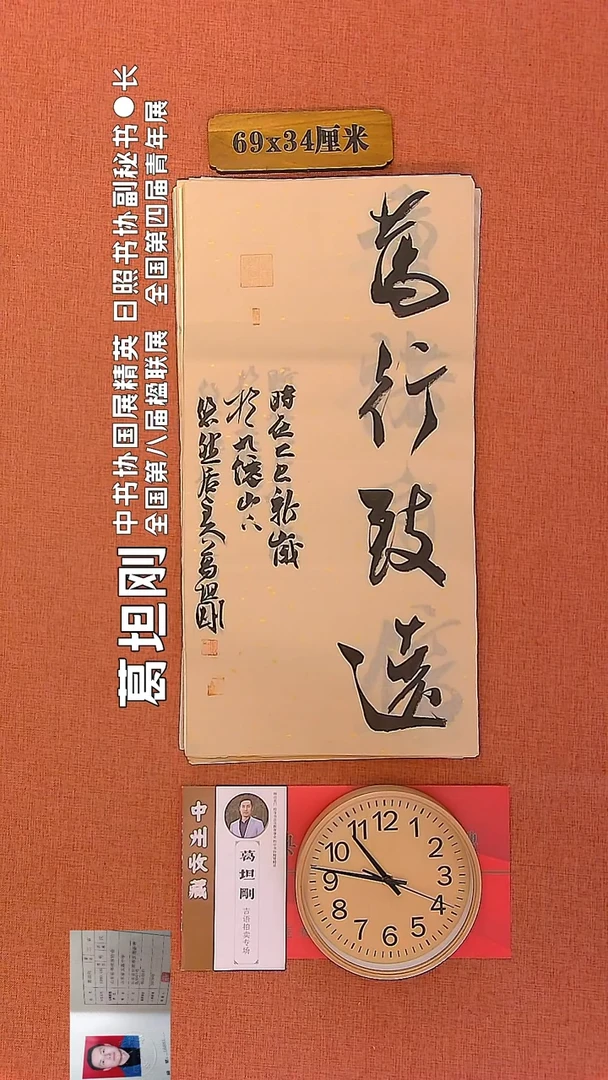 69x34厘米
葛坦刚
中书协国展精英 日照书协副秘书●长
全国第八届楹联展 全国第四届青年展
萬行致遠
時在乙巳新歲
於九仙山人
悠然居主人葛坦剛
中洲收藏
葛坦剛
言语拍卖专场
12
1
2
3
4
5
6
7
8
9
10
11